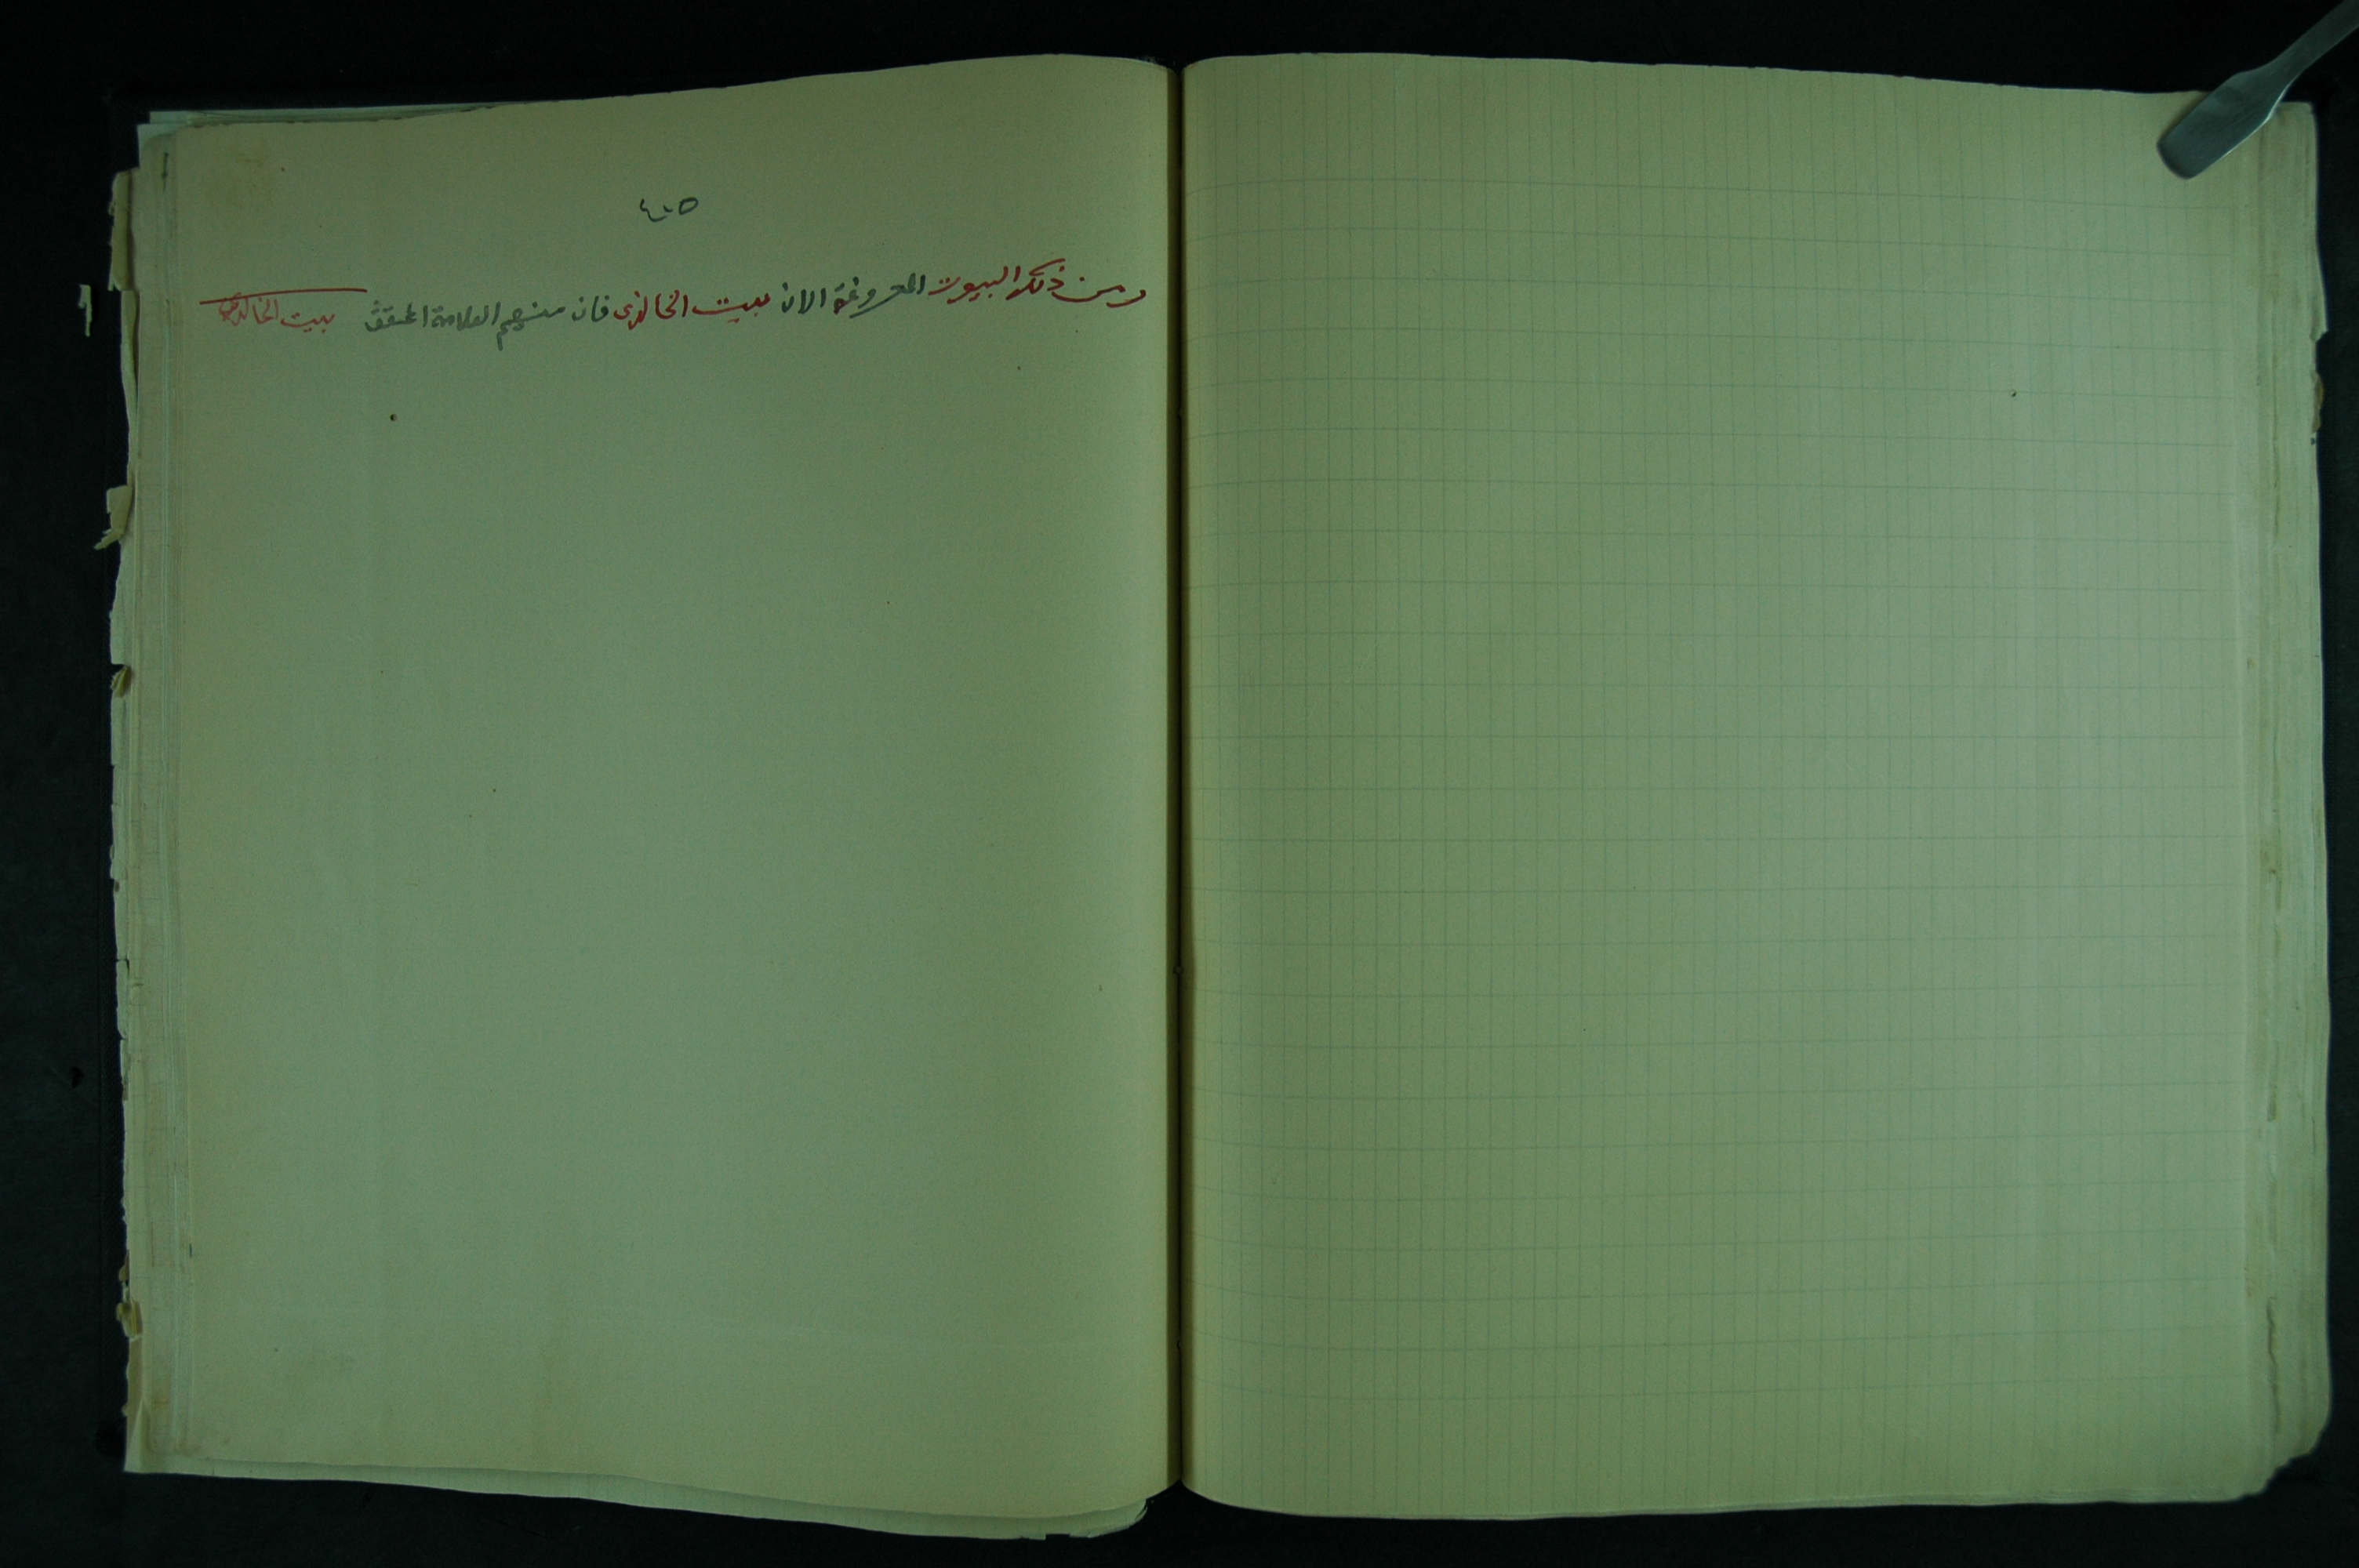 ٤٠٥
ومن ذلك البيوت المعروفة الان بيت الخالدى فان منهم العلامة المحقق بيت الخالدى